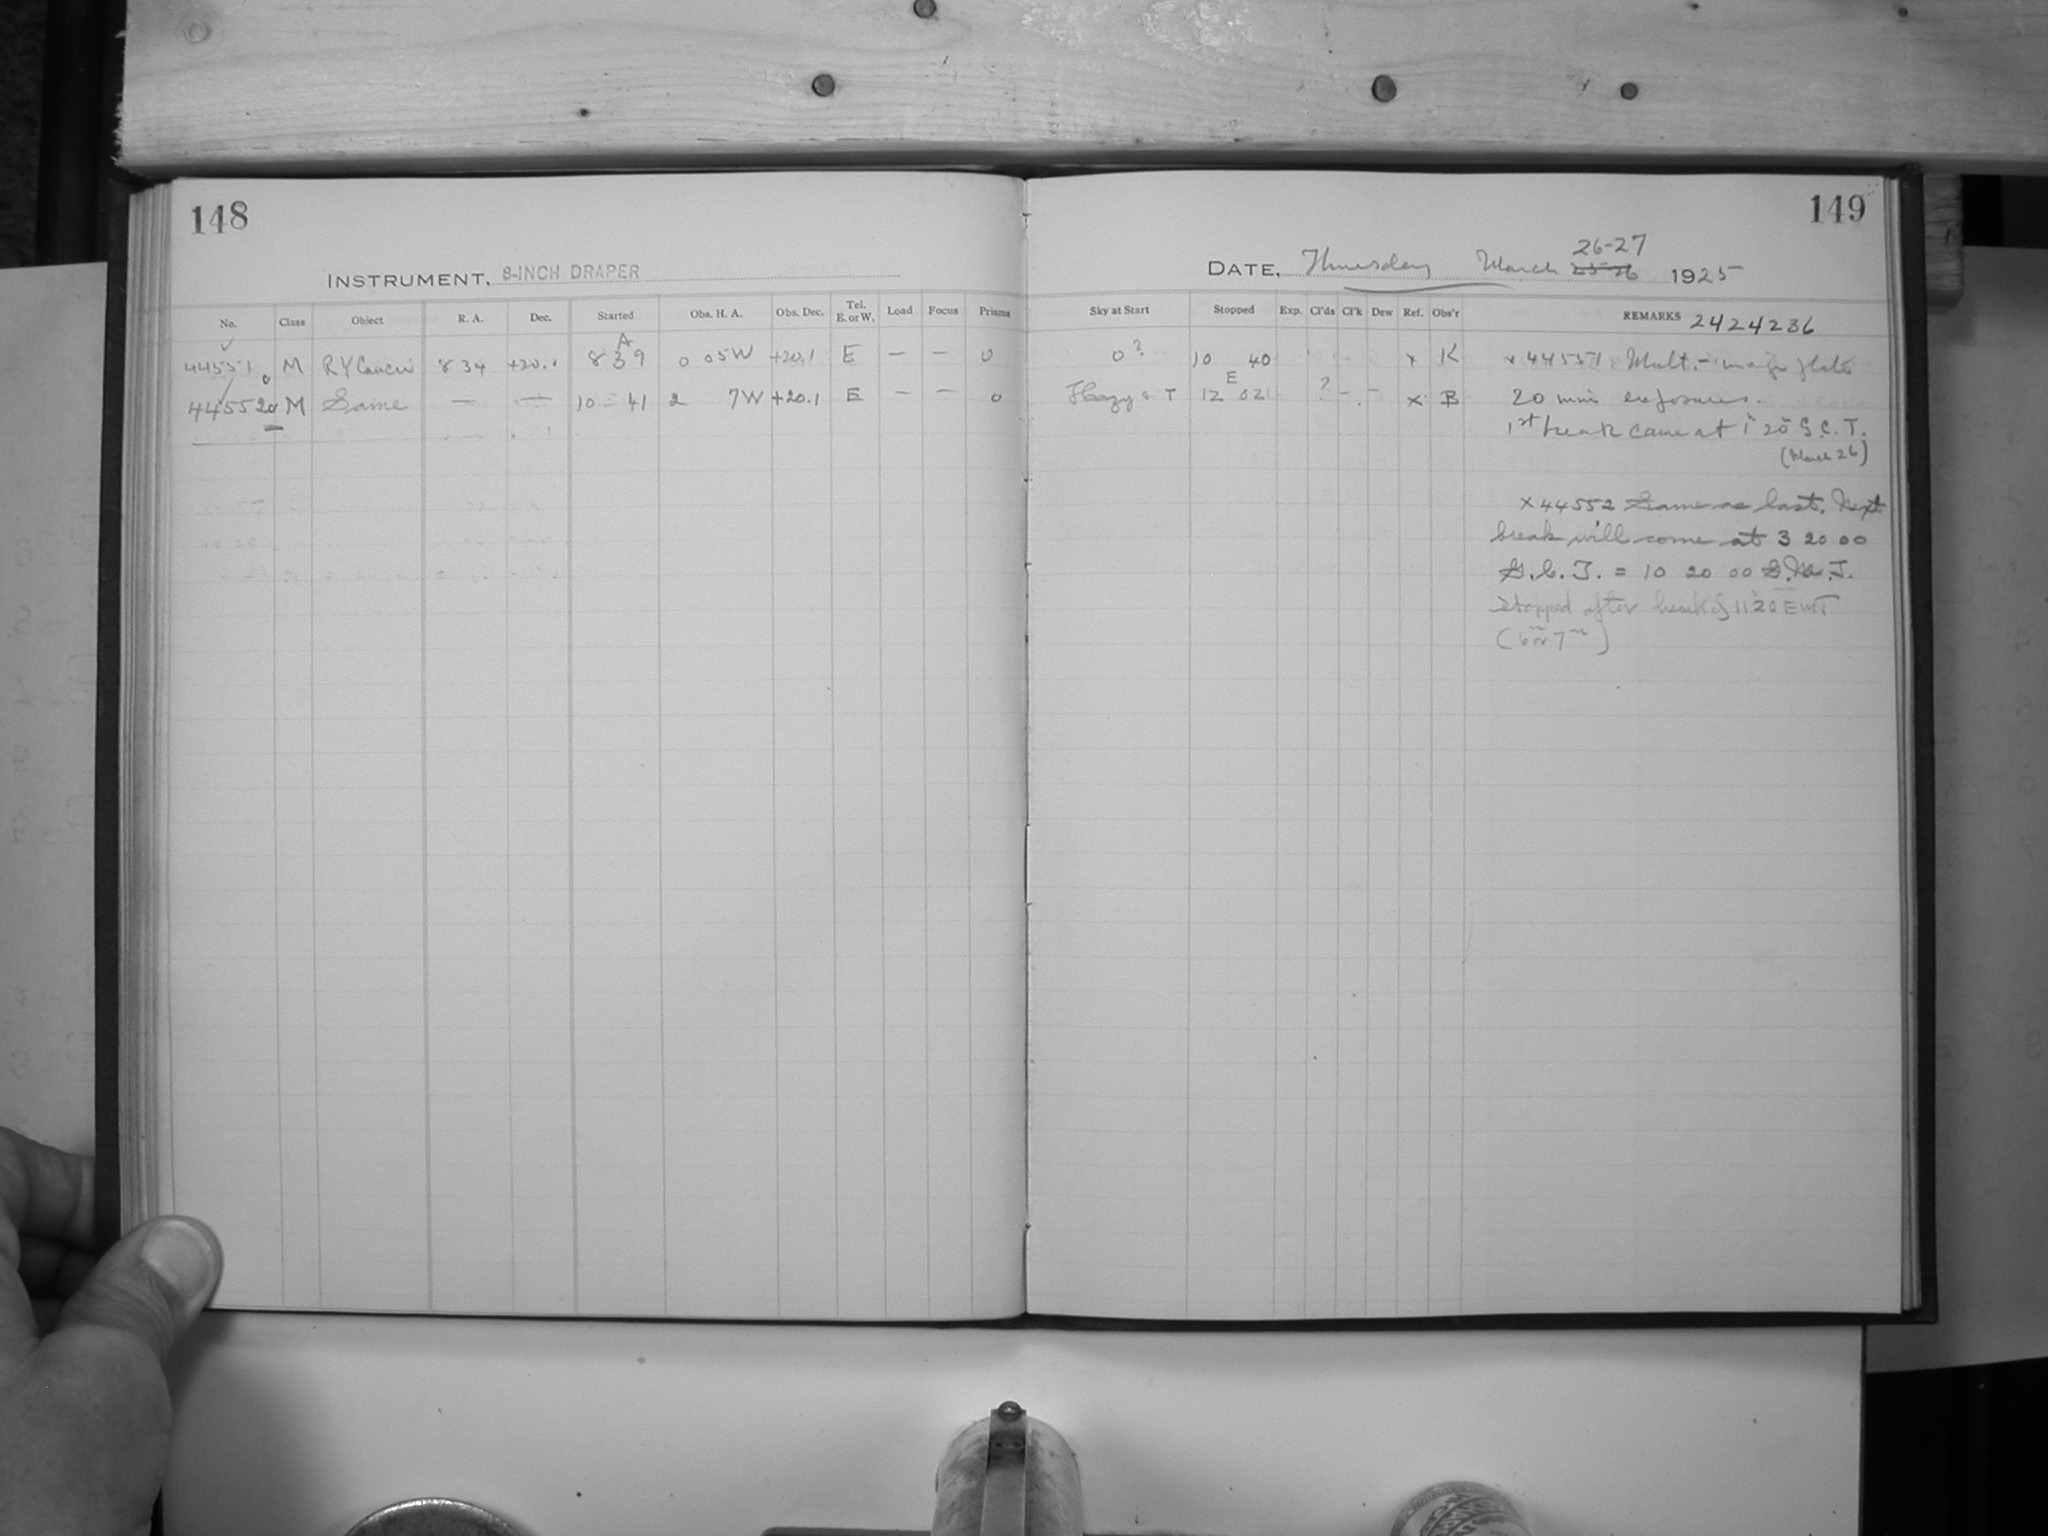 148
INSTRUMENT, 8-INCH DRAPER
No. Class Object R. A. Dec. Started Obs. H. A. Obs. Dec. Tel. E. or W. Load Focus Prisms
44551 M RY Cancri 8 34 +20.1 A 8 39 0 05W +20.1 E — — 0
44552 M Same — — 10 41 2 7W +20.1 E — — 0
149
DATE, Thursday March 25-26 26-27 1925
Sky at Start Stopped Exp. Cl'ds Cl'k Dew Ref. Obs'r REMARKS 2424236
0? 10 40 x K x 44551. Mult.- image plate
Hazy + T 12 E 02 ? - - x B 20 min exposures.
1st break came at 1 20 G.C.T.
(March 26)
x 44552 Same as last. Next
break will come at 3 20 00
G.C.T. = 10 20 00 E.M.T.
Stopped after break of 11 20 EMT
(6 or 7m)